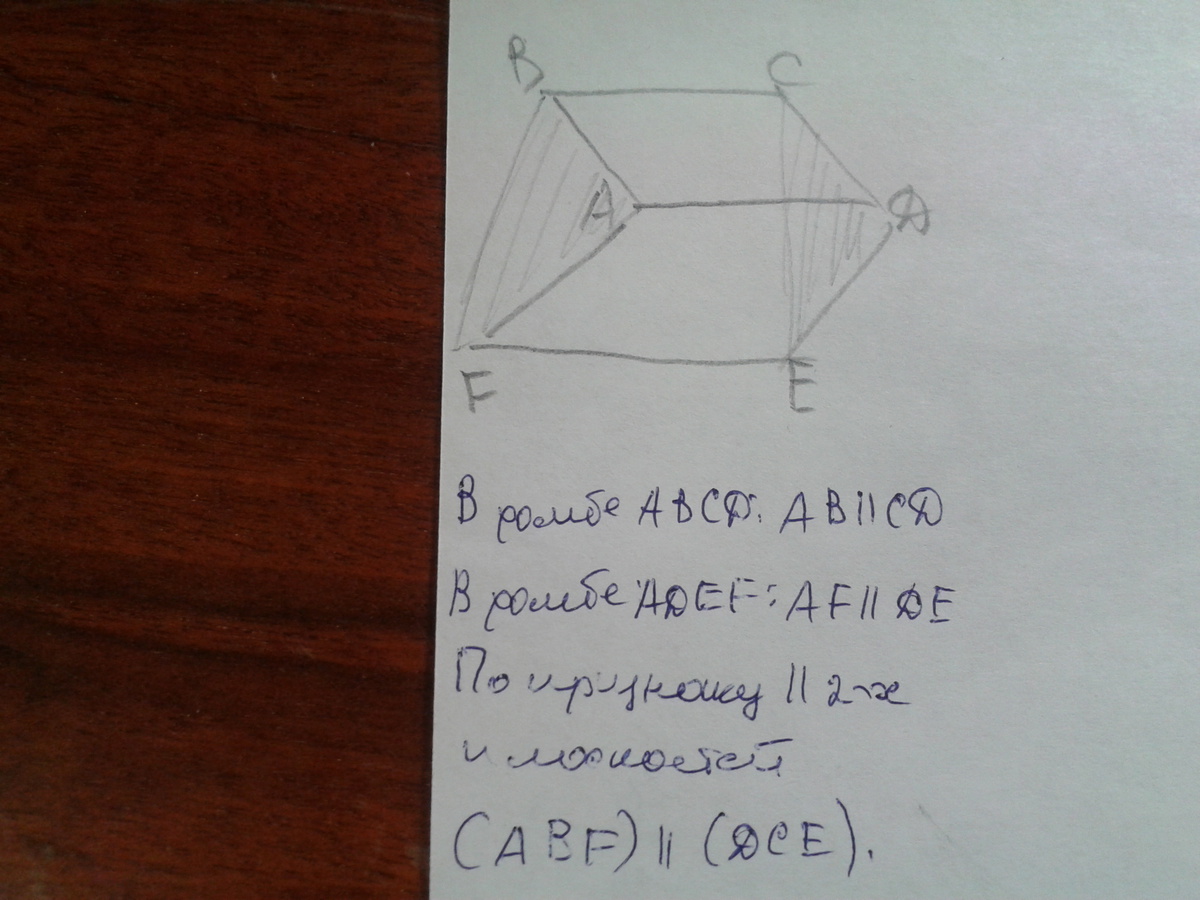 B C
A D
F E
В ромбе ABCD: AB || CD
В ромбе ADEF: AF || DE
По признаку || 2-х
плоскостей
(ABF) || (DCE).